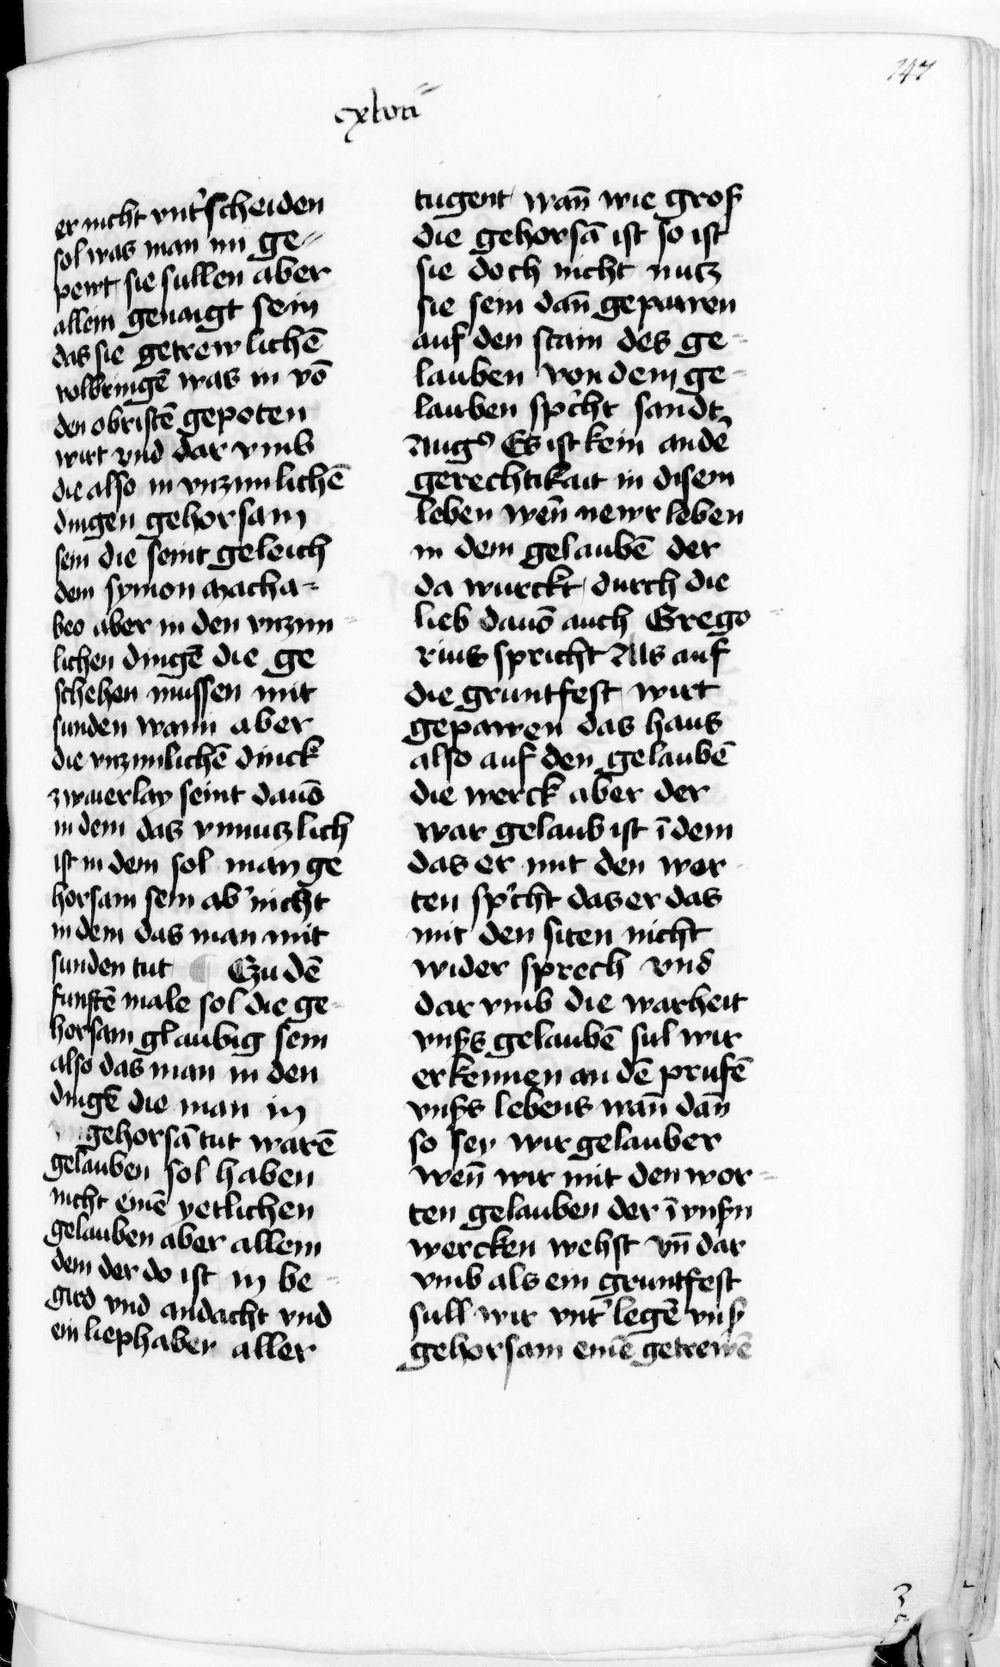 147
cxlvii
er nicht vnt'scheiden
sol was man im ge-
pewt sie sullen aber
allein genaigt sein
das sie getrewlichē
volbringē was in vō
den obristē gepoten
wirt vnd dar vmb
die also in vnzimlichē
dingen gehorsam
sein die seint geleich
dem symon macha-
beo aber in den vnzim-
lichen dingē die ge
schehen mussen mit
sunden wann aber
die vnzimlichē dinck
zwaierlay seint dauō
in dem das vnnutzlich
ist in dem sol man ge
horsam sein ab' nicht
in dem das man mit
sunden tut Zu dē
funftē male sol die ge-
horsam glaubig sein
also das man in den
dingē die man in
gehorsā tut warē
gelauben sol haben
nicht einē yetlichen
gelauben aber allein
dem der do ist in be-
gird vnd andacht vnd
ein liephaber aller
tugent wan̄ wie groß
die gehorsā ist so ist
sie doch nicht nutz
sie sein dan̄ gepawen
auf den stam des ge-
lauben von dem ge-
lauben sp'cht sandt
Aug9 Es ist kein ande'
gerechtikait in disem
leben wen̄ newr leben
in dem gelaubē der
da wurckt durch die
lieb dauō auch Grego-
rius spricht Als auf
die gruntfest wirt
gepawen das haus
also auf den gelaubē
die werck aber der
war gelaub ist ī dem
das er mit den wor-
ten sp'cht das er das
mit den siten nicht
wider sprech vnd
dar vmb die warheit
vnßs gelaubē sul wir
erkennen an dē prufē
vnßs lebens wan̄ dan̄
so sey wir gelauber
wen̄ wir mit den wor-
ten gelauben der ī vnßn
wercken wehst vn̄ dar
vmb als ein gruntfest
sull wir vnt' legē vnß
gehorsam einē getrewē